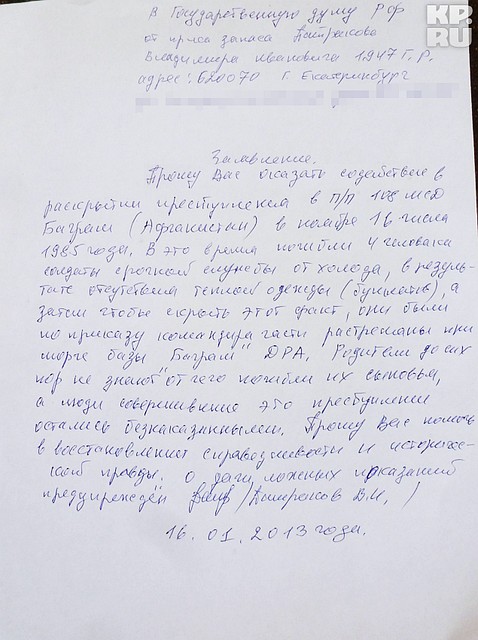 KP.
RU
В Государственную думу РФ
от пр-ка запаса
Владимира Ивановича 1947 г.р.
адрес: 620070 г. Екатеринбург
Заявление.
Прошу Вас оказать содействие в
раскрытии преступления в П/П 108 МСД
Баграм (Афганистан) в ноябре 16 числа
1985 года. В это время погибли 4 человека
солдаты срочной службы от холода, в резуль-
тате отсутствия теплой одежды (бушлатов), а
затем чтобы скрыть этот факт, они были
по приказу командира части растреляны при
морге базы "Баграм" ДРА. Родители до сих
пор не знают от чего погибли их сыновья,
а люди совершившие это преступление
остались безнаказанными. Прошу Вас помочь
в восстановлении справедливости и историчес-
кой правды. О даче ложных показаний
предупреждён В.И. )
16.01.2013 года.